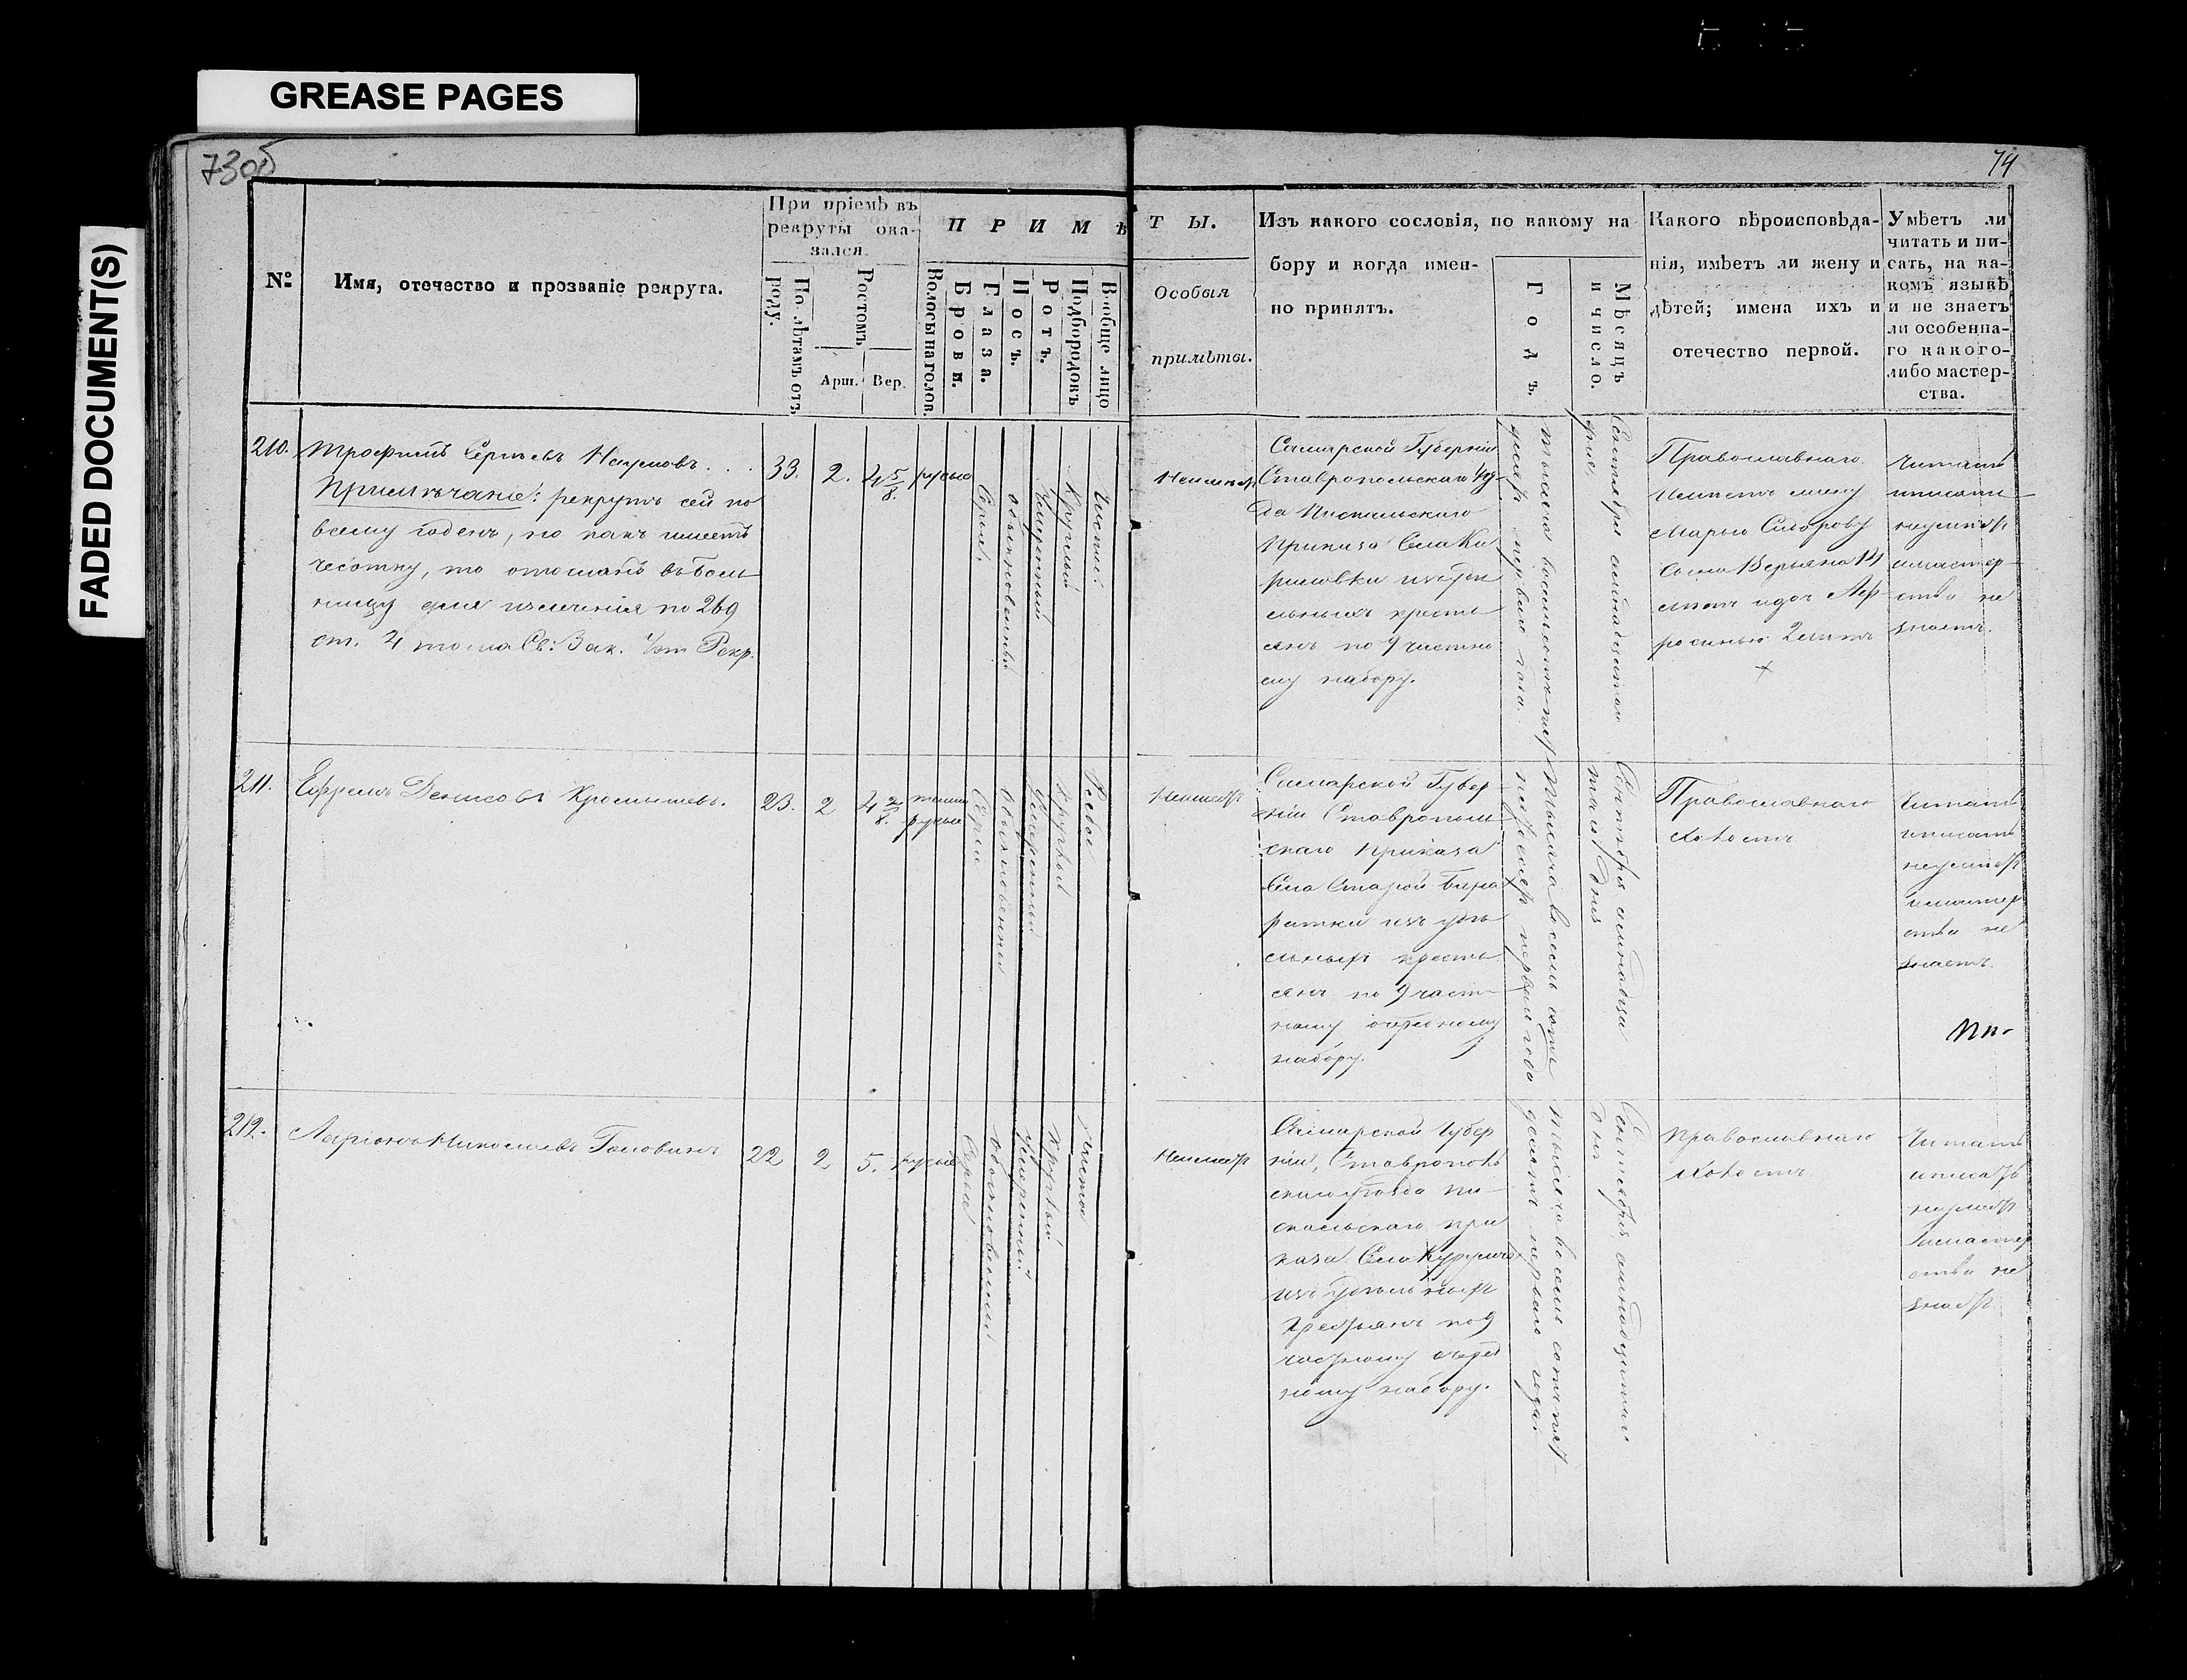 GREASE PAGES
FADED DOCUMENT(S)
73об
74
№
Имя, отечество и прозваніе рекрута.
При пріемѣ въ
рекруты ока-
зался
По лѣтамъ отъ
роду.
Ростомъ
Арш.
Вер.
ПРИМѢ
Волосы на голов.
Брови.
Глаза.
Носъ.
Ротъ.
Подбородокъ
Вообще лицо
ТЫ.
Особыя
примѣты.
Изъ какого сословія, по какому на
бору и когда имен-
но принятъ.
Годъ.
Мѣсяцъ
и число.
Какого вѣроисповѣда-
нія, имѣетъ ли жену и
дѣтей; имена ихъ и
отечество первой.
Умѣетъ ли
читать и пи-
сать, на ка-
комъ языкѣ
и не знаетъ
ли особенна-
го какого-
либо мастер-
ства.
210.
Трофимъ Сергѣевъ Наумовъ...
Примѣчаніе: рекрутъ сей по
всему годенъ, но какъ имѣетъ
чесотку, то отосланъ въ боль
ницу для излеченія по 269
ст. 4 тома Св: Зак. Рекр.
33.
2.
4 5/8
русые
Сѣрые
обыкновенный
умѣренный
Круглый
Чистый
Неимѣетъ
Самарской Губерніи
Ставропольскаго Уѣз-
да
Приказа Села Ки
риловки изъ удѣ
льныхъ кресть
янъ по 9 частно
му набору.
тысяча восемьсотъ пять
десятъ перваго года.
Сентября семнадцатаго
дня
Православнаго
Имѣетъ жену
Марью Сидорову
сына 14
лѣтъ и доч Аф-
росинью 2 лѣтъ
Читать
и писать
неумѣетъ
и мастер-
ства не
знаетъ.
211.
Ефремъ Денисовъ
23.
2
4 2/8.
темно
русые
Сѣрые
Обыкновенный
Умѣренный
Круглый
Рябое
Неимѣетъ
Самарской Губер
ніи Ставрополь
скаго Приказа
Села Старой Бина
радки изъ удѣ
льныхъ кресть
янъ по 9 част-
ному очередному
набору.
Тысяча восемь сотъ
пятьдесятъ перваго года
Сентября семнадца
таго дня
Православнаго
Холостъ
Читать
и писать
неумѣетъ
и мастер
ства не
знаетъ.
212.
Ларіонъ Николаевъ Головинъ
22
2
5.
русые
Сѣрые
Обыкновенный
Умѣренный
Круглый
Чистое
Неимѣетъ
Самарской Губер
ніи, Ставрополь
скаго уѣзда Пи-
скальскаго при
каза Села Курумоча
изъ удѣльныхъ
крестьянъ по 9
частному очеред
ному набору.
Тысяча восемь сотъ пять-
десятъ перваго года.
Сентября семнадцатаго
дня
Православнаго
Холостъ
Читать
и писать
неумѣетъ
и мастер
ства не
знаетъ.